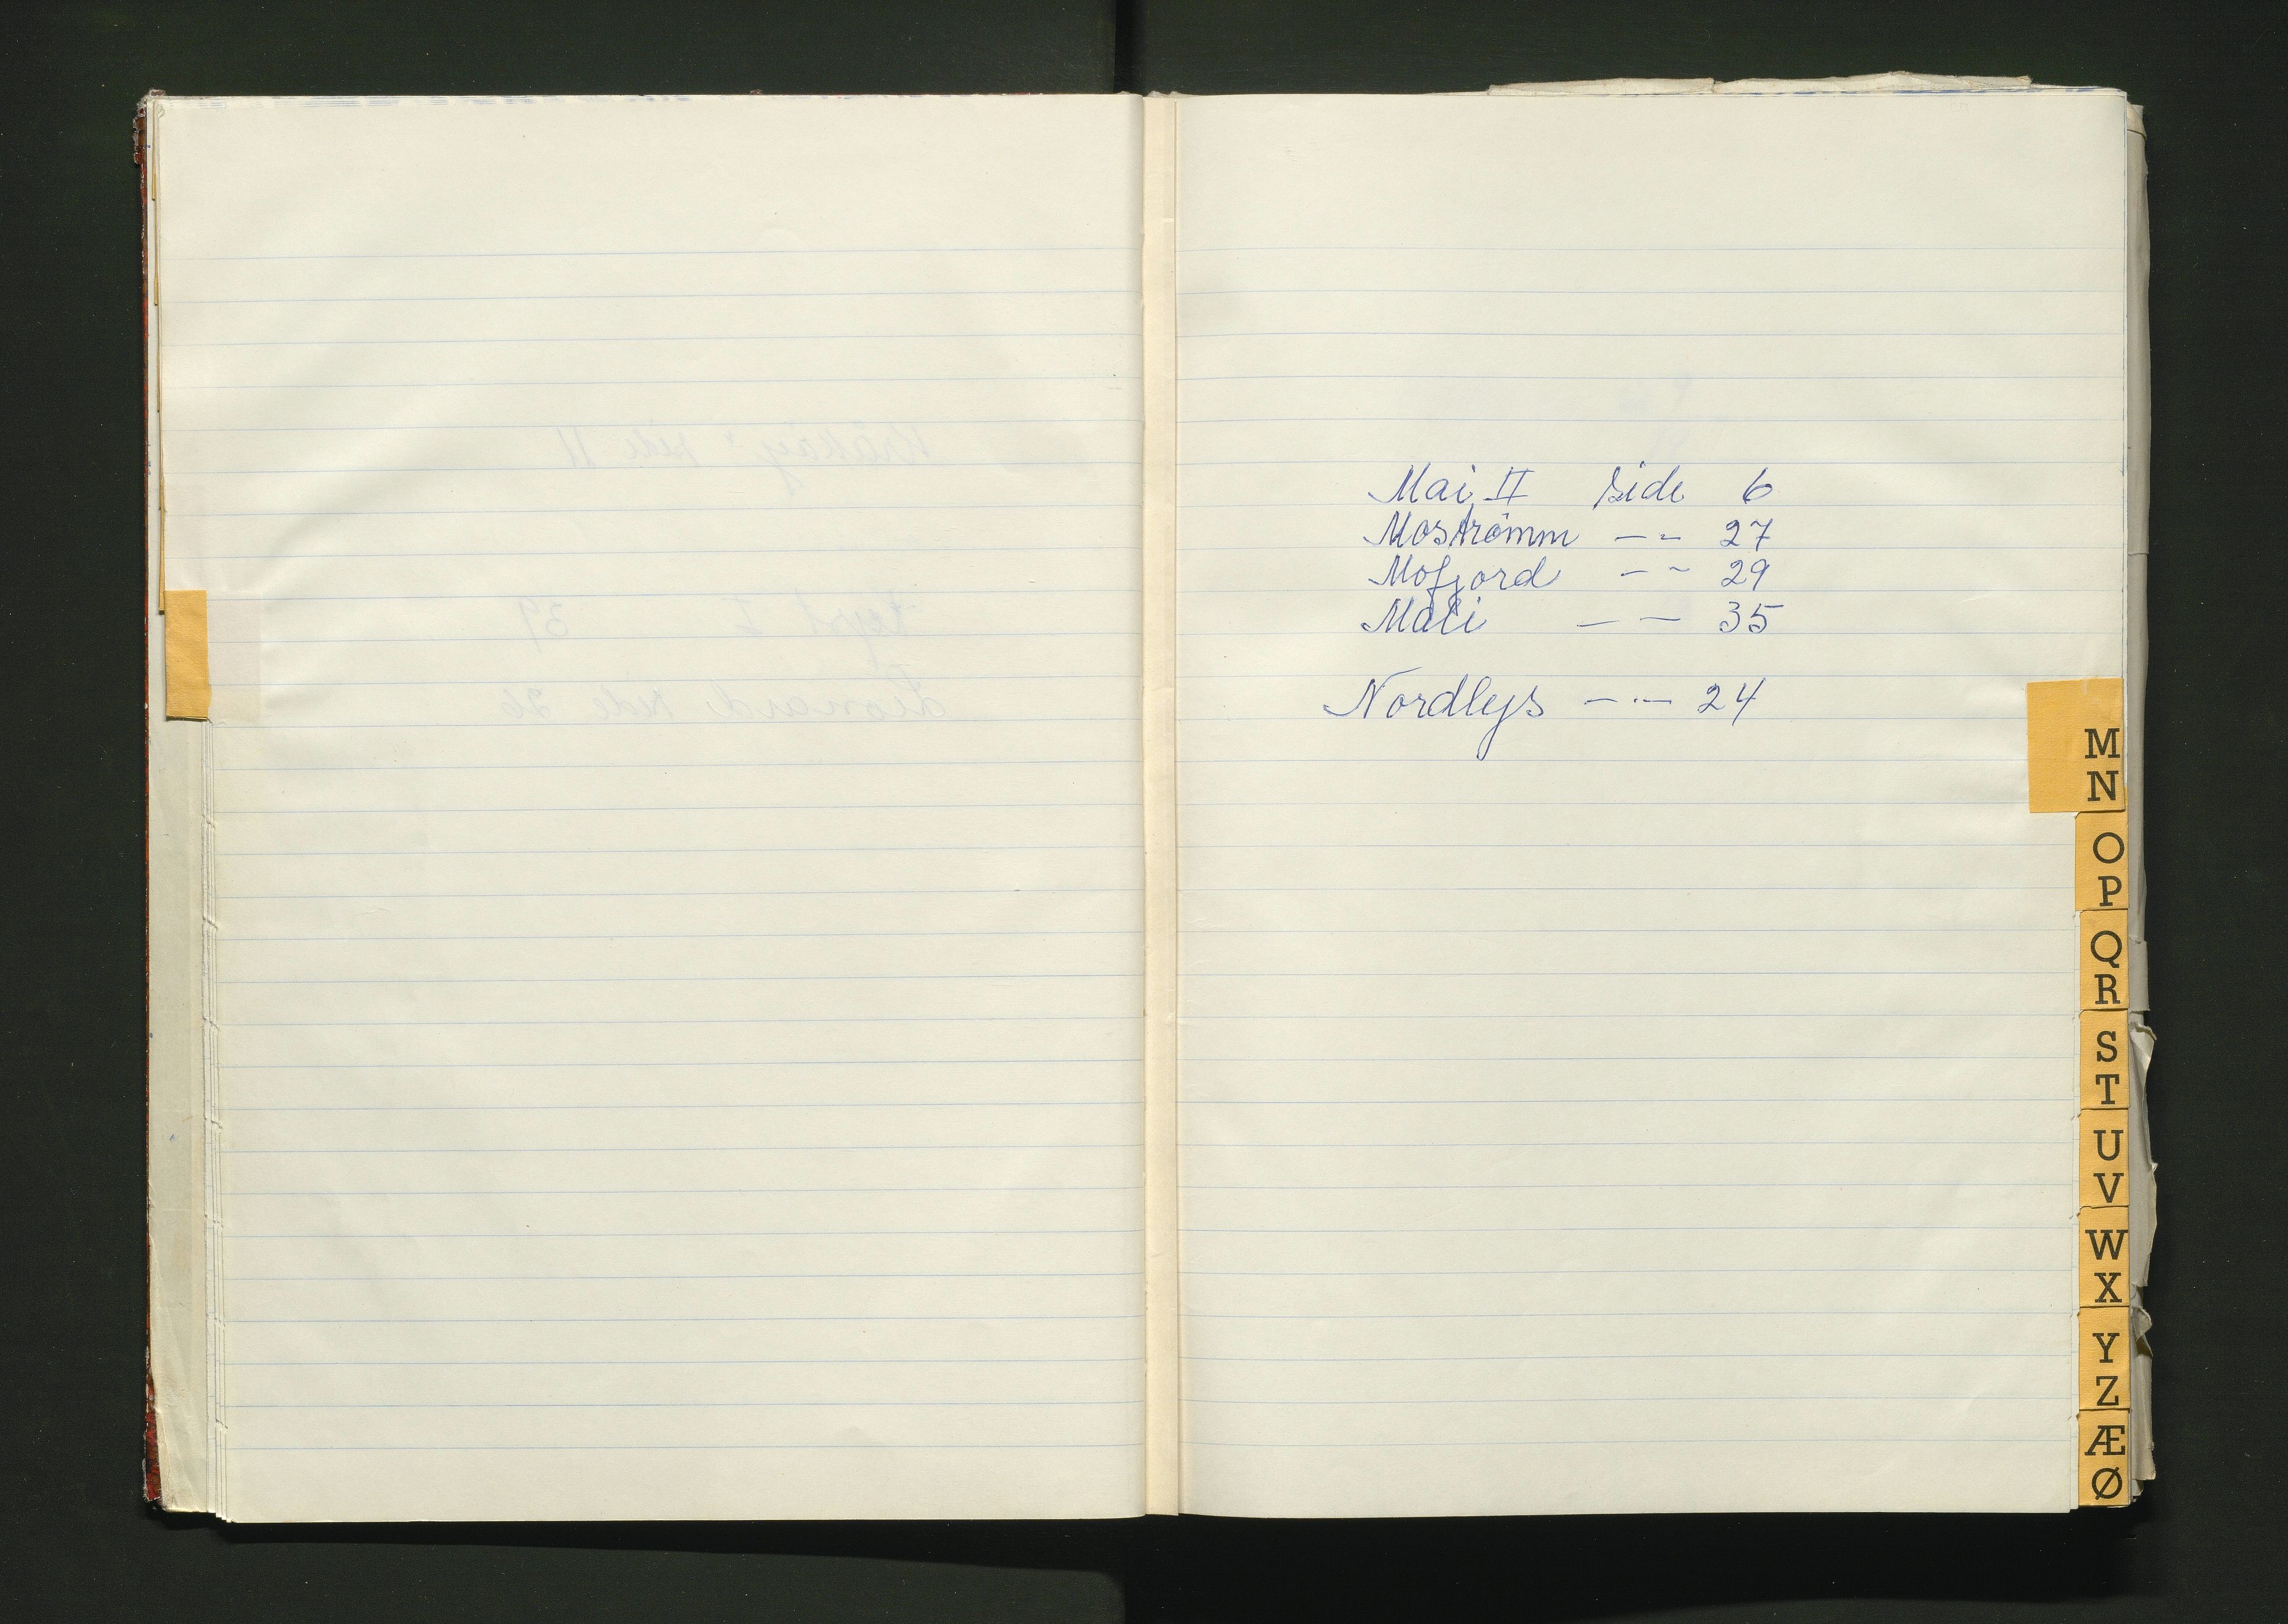 Mai II side 6
Mostrømm — - 27
Mofjord — - 29
Mali — — 35
Nordlys — · — 24
M
N
O
P
Q
R
S
T
U
V
W
X
Y
Z
Æ
Ø